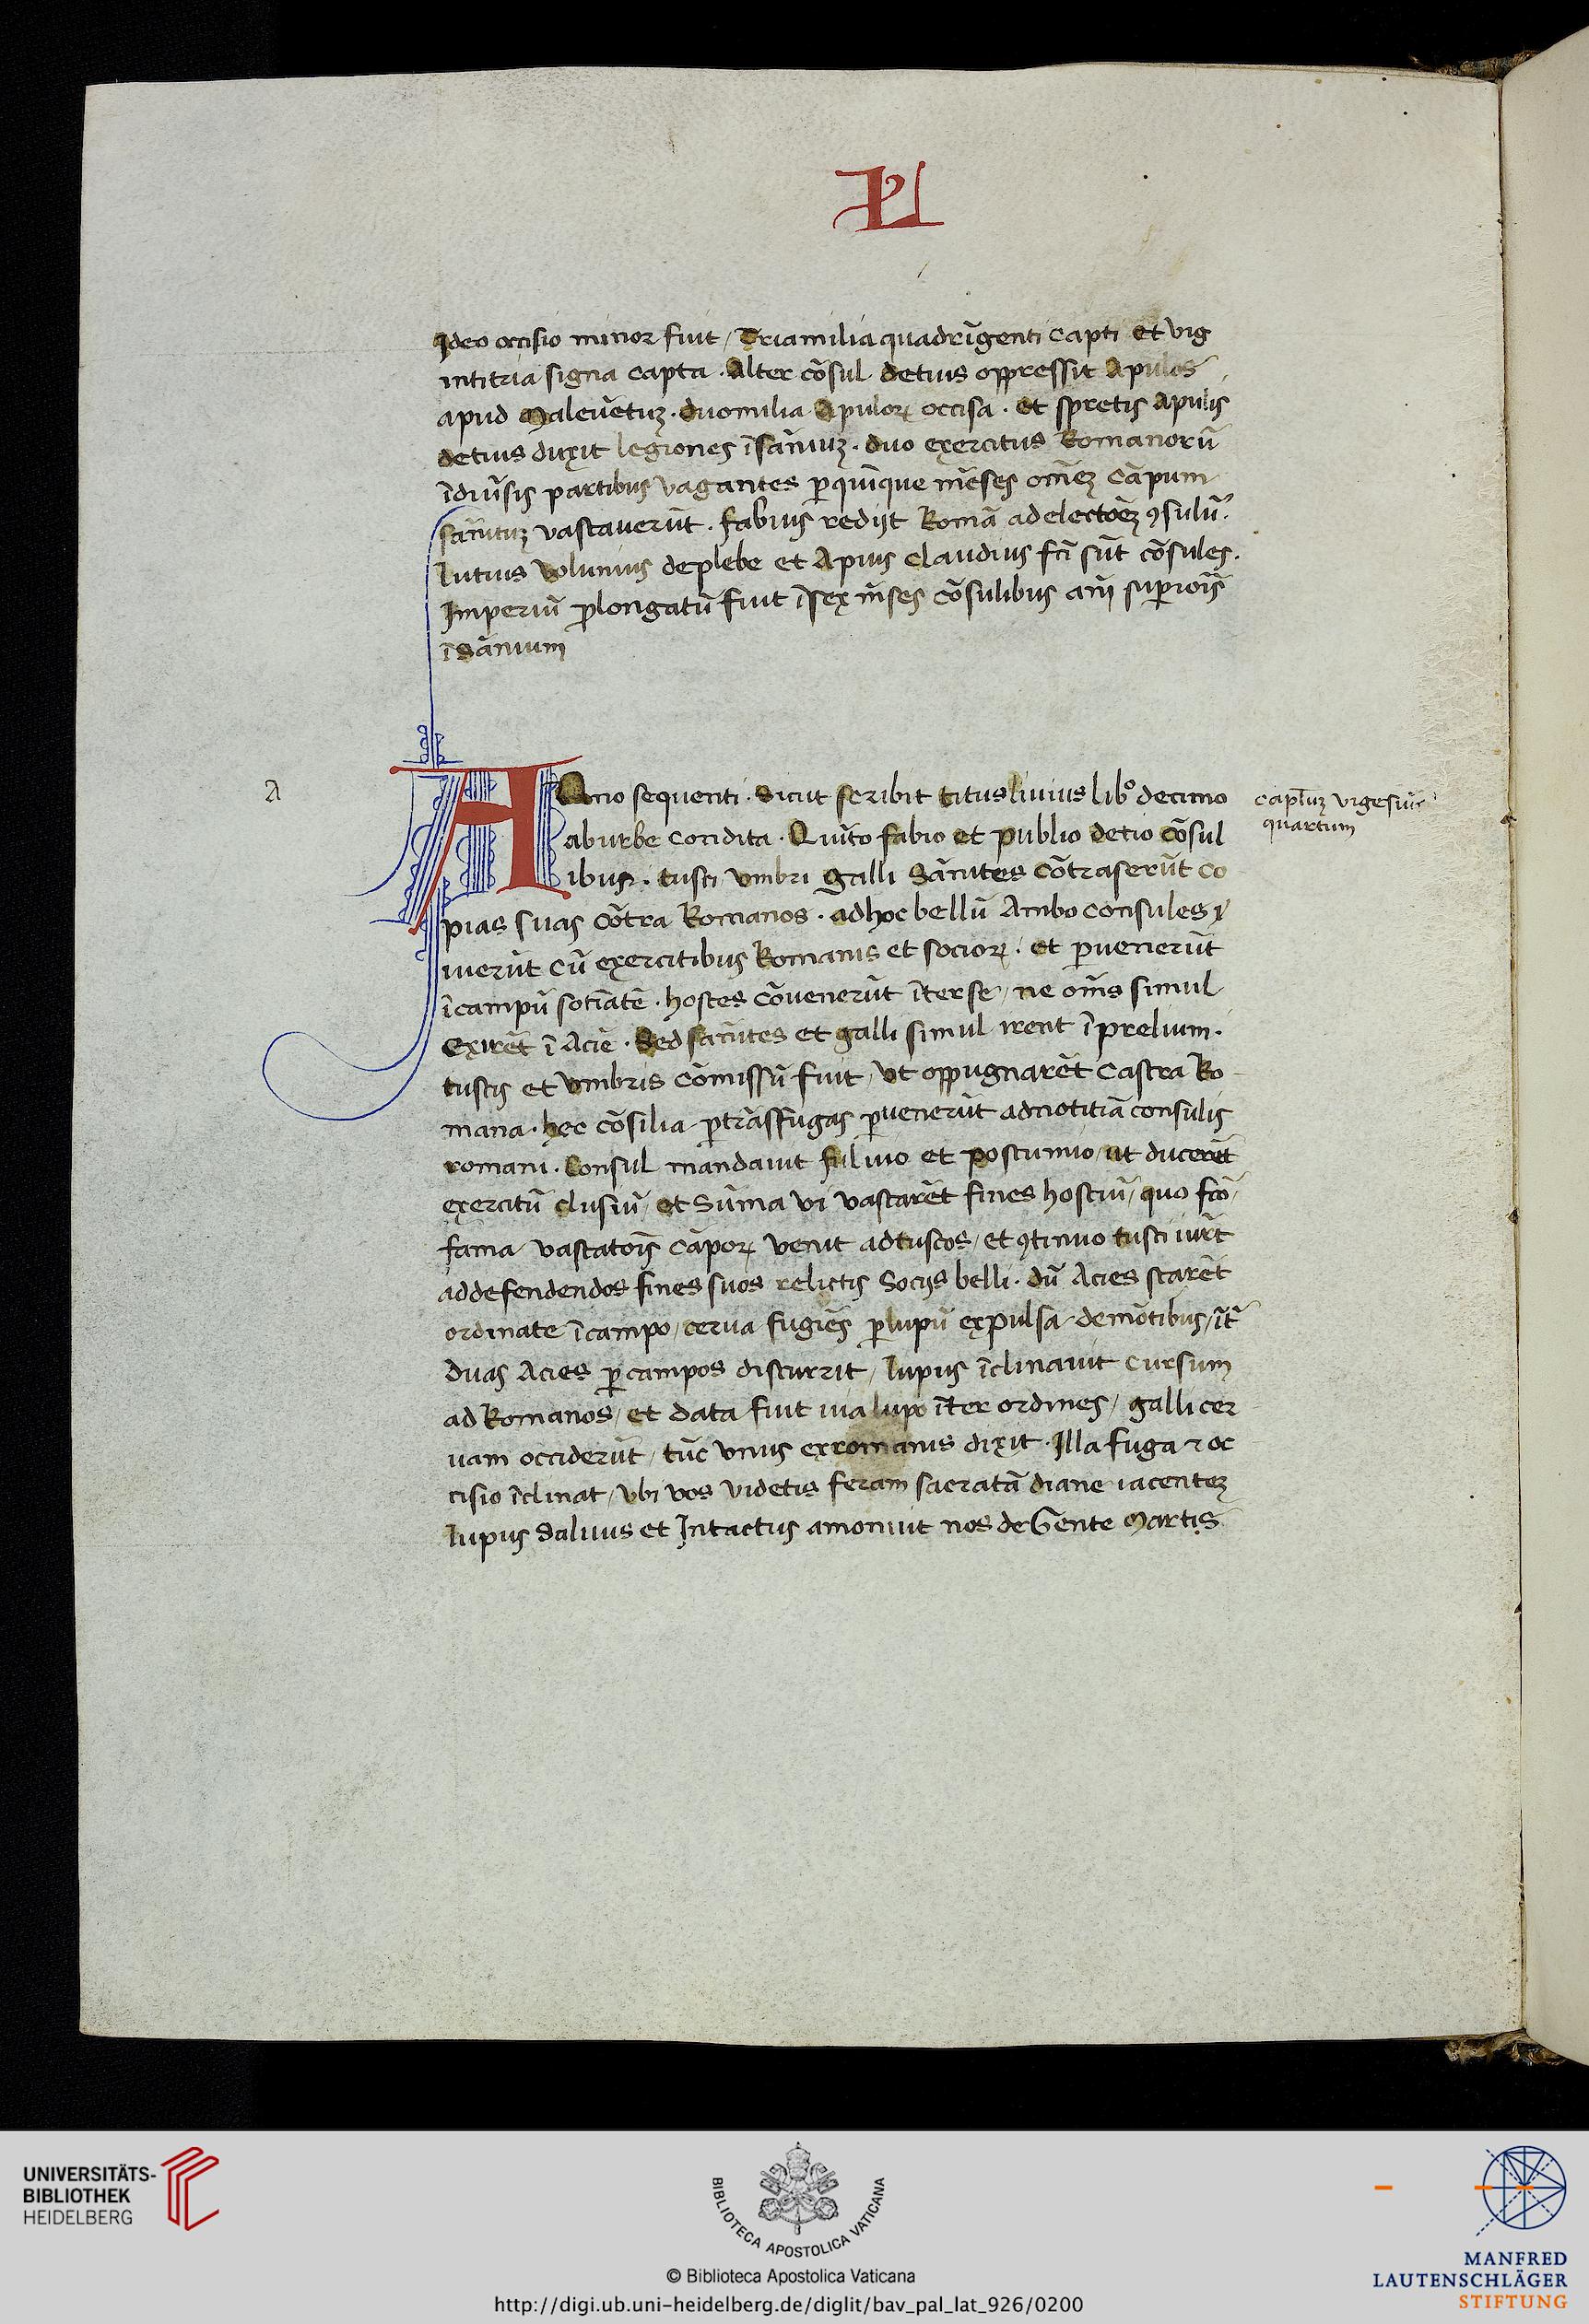 Ideo occisio minor fuit / Triamilia quadrīgenti capti et vig
intitria signa capta . Alter cōsul detius oppressit Apulos
apud Maleuētuꝫ . duomilia Apuloꝝ occisa . et spretis Apulis
detius duxit legiones ī sāniuꝫ . duo exercitus Romanorū
ī diūsis partibus vagantes ꝑ quīque mēses omēꝫ cāpum
sānituꝫ vastauerūt . fabius redijt Romā ad electōēꝫ ꝯsulū .
lutius volunius de plebe et Apius claudius fcī sūt cōsules .
Imperiū ꝓlongatū fuit ī sex mēses cōsulibus anī superiōis
ī sānium
a
Anno sequenti . sicut scribit titus liuius libº decimo
ab urbe condita . Quīto fabio et publio detio cōsul
ibus . tusci vmbri galli Sānites cōtraserūt co
pias suas cōtra Romanos . ad hoc bellū Ambo consules y
uerūt cū exercitibus Romanis et socioꝝ . et ꝑuenerūt
ī campū sotiātē . hostes cōuenerūt īter se / ne omīs simul
exirēt ī Aciē . Sed sānites et galli simul irent ī prelium .
tuscis et vmbris cōmissū fuit / vt oppugnarēt castra Ro
mana . hec cōsilia ꝑ trāsfugas ꝑuenerūt ad notitiā consulis
romani . Consul mandauit fuluio et postumio / ut ducerēt
exercitū clusiū / et Sūma vi vastarēt fines hostiū / quo fcō /
fama vastatōis cāpoꝝ venit ad tuscos / et ꝯtinuo tusci iuērt
ad defendendos fines suos relictis Socijs belli . dū Acies starēt
ordinate ī campo / cerua fugiēs ꝑ lupū expulsa de mōtibus / īt̄
duas Acies ꝑ campos discurrit / lupus īclinauit cursum
ad Romanos / et data fuit uia lupo īter ordines / galli cer
uam occiderūt / tūc vnus ex romanis dixit . Illa fuga ⁊ oc
cisio īclinat / vbi vos videtis feram sacratā diane iacenteꝫ
lupus Saluus et Intactus amonuit nos de Gente Martis
capl̄uꝫ vigesim
quartum
UNIVERSITÄTS-
BIBLIOTHEK
HEIDELBERG
BIBLIOTECA APOSTOLICA VATICANA
© Biblioteca Apostolica Vaticana
http://digi.ub.uni-heidelberg.de/diglit/bav_pal_lat_926/0200
MANFRED
LAUTENSCHLÄGER
STIFTUNG